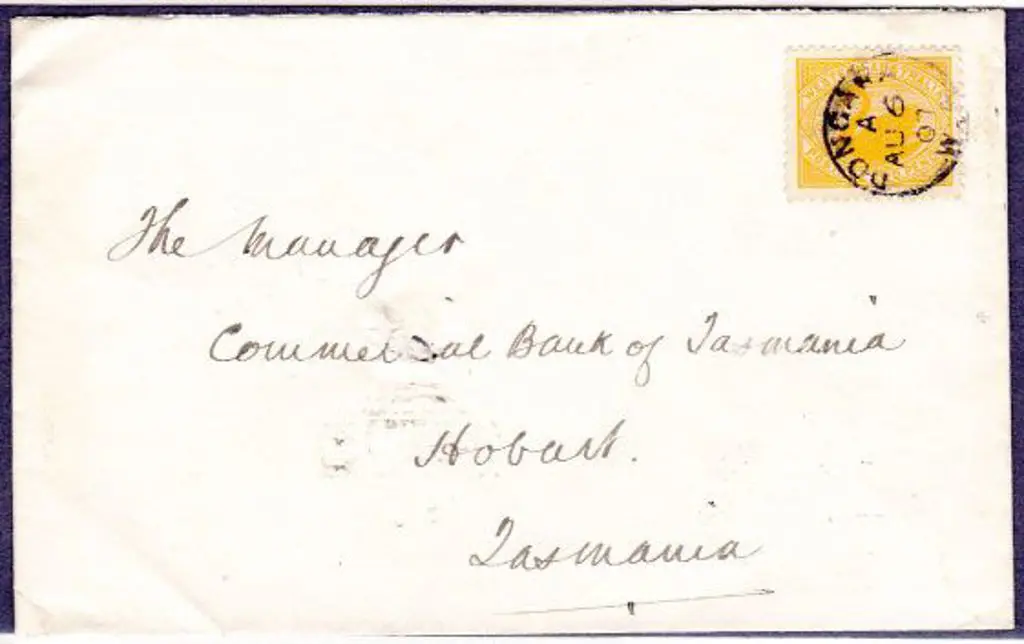 A
AU 6
07
W.A
The Manager
Commercial Bank of Tasmania
Hobart.
Tasmania